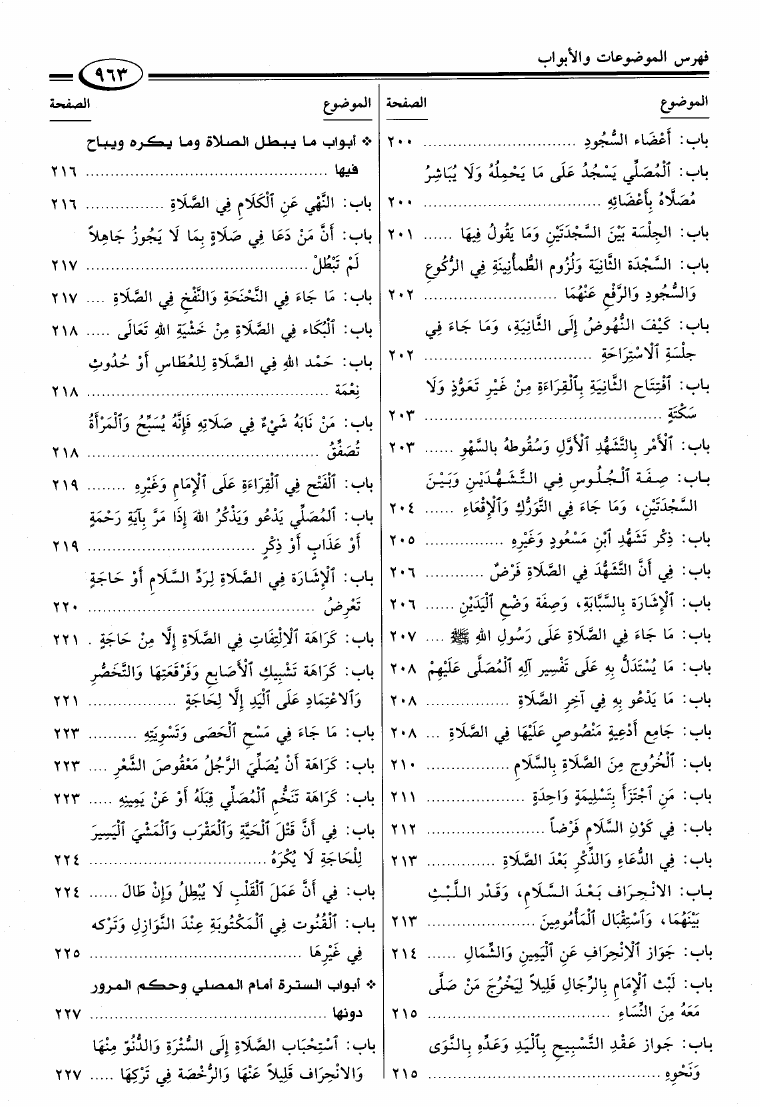 فهرس الموضوعات والأبواب
٩٦٣
الموضوع الصفحة
باب: أَعْضَاء السُّجُودِ ............................ ٢٠٠
باب: ٱلْمُصَلِّي يَسْجُدُ عَلَى مَا يَحْمِلُهُ وَلَا يُبَاشِرُ
مُصَلَّاهُ بِأَعْضَائِهِ ............................ ٢٠٠
باب: الجِلْسَة بَيْنَ السَّجْدَتَيْنِ وَمَا يَقُولُ فِيهَا ...... ٢٠١
باب: السَّجْدَة الثَّانِيَة وَلُزُوم الطُّمَأْنِينَة فِي الرُّكُوعِ
وَالسُّجُودِ وَالرَّفْعِ عَنْهُمَا ........................ ٢٠٢
باب: كَيْفَ النُّهُوضُ إِلَى الثَّانِيَةِ، وَمَا جَاءَ فِي
جِلْسَةِ ٱلْاسْتِرَاحَةِ ................................ ٢٠٢
باب: ٱفْتِتَاح الثَّانِيَة بِٱلْقِرَاءَةِ مِنْ غَيْرِ تَعَوُّذٍ وَلَا
سَكْتَةٍ .......................................... ٢٠٣
باب: ٱلْأَمْر بِالتَّشَهُّدِ ٱلْأَوَّلِ وَسُقُوطه بِالسَّهْوِ ...... ٢٠٣
باب: صِفَة ٱلْجُلُوسِ فِي التَّشَهُّدَيْنِ وَبَيْنَ
السَّجْدَتَيْنِ، وَمَا جَاءَ فِي التَّوَرُّكِ وَٱلْإِقْعَاءِ ...... ٢٠٤
باب: ذِكْر تَشَهُّدِ ٱبْنِ مَسْعُودٍ وَغَيْرِهِ ................ ٢٠٥
باب: فِي أَنَّ التَّشَهُّدَ فِي الصَّلَاةِ فَرْضٌ ............ ٢٠٦
باب: ٱلْإِشَارَة بِالسَّبَّابَةِ، وَصِفَة وَضْعِ ٱلْيَدَيْنِ ...... ٢٠٦
باب: مَا جَاءَ فِي الصَّلَاةِ عَلَى رَسُولِ اللهِ ﷺ .... ٢٠٧
باب: مَا يُسْتَدَلُّ بِهِ عَلَى تَفْسِيرِ آلِهِ ٱلْمُصَلَّى عَلَيْهِمْ ٢٠٨
باب: مَا يَدْعُو بِهِ فِي آخِرِ الصَّلَاةِ .................. ٢٠٨
باب: جَامِع أَدْعِيَةٍ مَنْصُوصٍ عَلَيْهَا فِي الصَّلَاةِ ... ٢٠٨
باب: ٱلْخُرُوج مِنَ الصَّلَاةِ بِالسَّلَامِ .................. ٢١٠
باب: مَنِ ٱجْتَزَأَ بِتَسْلِيمَةٍ وَاحِدَةٍ .................... ٢١١
باب: فِي كَوْنِ السَّلَامِ فَرْضاً ...................... ٢١٢
باب: فِي الدُّعَاءِ وَالذِّكْرِ بَعْدَ الصَّلَاةِ .............. ٢١٣
باب: الانْحِرَاف بَعْدَ السَّلَامِ، وَقَدْر اللَّبْثِ
بَيْنَهُمَا، وَٱسْتِقْبَال ٱلْمَأْمُومِينَ .................... ٢١٣
باب: جَوَاز ٱلْانْحِرَافِ عَنِ ٱلْيَمِينِ وَالشِّمَالِ ...... ٢١٤
باب: لَبْث ٱلْإِمَامِ بِالرِّجَالِ قَلِيلاً لِيَخْرُجَ مَنْ صَلَّى
مَعَهُ مِنَ النِّسَاءِ .................................. ٢١٥
باب: جَوَاز عَقْدِ التَّسْبِيحِ بِٱلْيَدِ وَعَدِّهِ بِالنَّوَى
وَنَحْوِهِ .......................................... ٢١٥
الموضوع الصفحة
* أبواب ما يبطل الصلاة وما يكره ويباح
فيها ............................................ ٢١٦
باب: النَّهْي عَنِ ٱلْكَلَامِ فِي الصَّلَاةِ ................ ٢١٦
باب: أَنَّ مَنْ دَعَا فِي صَلَاةٍ بِمَا لَا يَجُوزُ جَاهِلاً
لَمْ تَبْطُلْ ........................................ ٢١٧
باب: مَا جَاءَ فِي النَّحْنَحَةِ وَالنَّفْخِ فِي الصَّلَاةِ .... ٢١٧
باب: ٱلْبُكَاء فِي الصَّلَاةِ مِنْ خَشْيَةِ اللهِ تَعَالَى ..... ٢١٨
باب: حَمْد اللهِ فِي الصَّلَاةِ لِلعُطَاسِ أَوْ حُدُوثِ
نِعْمَة ............................................ ٢١٨
باب: مَنْ نَابَهُ شَيْءٌ فِي صَلَاتِهِ فَإِنَّهُ يُسَبِّحُ وَٱلْمَرْأَةُ
تُصَفِّقُ .......................................... ٢١٨
باب: ٱلْفَتْح فِي ٱلْقِرَاءَةِ عَلَى ٱلْإِمَامِ وَغَيْرِهِ ........ ٢١٩
باب: ٱلْمُصَلِّي يَدْعُو وَيَذْكُرُ اللهَ إِذَا مَرَّ بِآيَةِ رَحْمَةٍ
أَوْ عَذَابٍ أَوْ ذِكْرٍ ................................ ٢١٩
باب: ٱلْإِشَارَة فِي الصَّلَاةِ لِرَدِّ السَّلَامِ أَوْ حَاجَةٍ
تَعْرِضُ .......................................... ٢٢٠
باب: كَرَاهَة ٱلْالْتِفَاتِ فِي الصَّلَاةِ إِلَّا مِنْ حَاجَةٍ . ٢٢١
باب: كَرَاهَة تَشْبِيكِ ٱلْأَصَابِعِ وَفَرْقَعَتِهَا وَالتَّخَصُّرِ
وَالاعْتِمَادِ عَلَى ٱلْيَدِ إِلَّا لِحَاجَةٍ .................. ٢٢١
باب: مَا جَاءَ فِي مَسْحِ ٱلْحَصَى وَتَسْوِيَتِهِ .......... ٢٢٣
باب: كَرَاهَة أَنْ يُصَلِّيَ الرَّجُلُ مَعْقُوصَ الشَّعْرِ .... ٢٢٣
باب: كَرَاهَة تَنَخُّمِ ٱلْمُصَلِّي قِبَلَهُ أَوْ عَنْ يَمِينِهِ ..... ٢٢٣
باب: فِي أَنَّ قَتْلَ ٱلْحَيَّةِ وَٱلْعَقْرَبِ وَٱلْمَشْيَ ٱلْيَسِيرَ
لِلْحَاجَةِ لَا يُكْرَهُ ................................ ٢٢٤
باب: فِي أَنَّ عَمَلَ ٱلْقَلْبِ لَا يُبْطِلُ وَإِنْ طَالَ ...... ٢٢٤
باب: ٱلْقُنُوت فِي ٱلْمَكْتُوبَةِ عِنْدَ النَّوَازِلِ وَتَرْكه
فِي غَيْرِهَا ...................................... ٢٢٥
* أبواب السترة أمام المصلي وحكم المرور
دونها .......................................... ٢٢٧
باب: ٱسْتِحْبَاب الصَّلَاةِ إِلَى السُّتْرَةِ وَالدُّنُوّ مِنْهَا
وَالانْحِرَاف قَلِيلاً عَنْهَا وَالرُّخْصَة فِي تَرْكِهَا ..... ٢٢٧